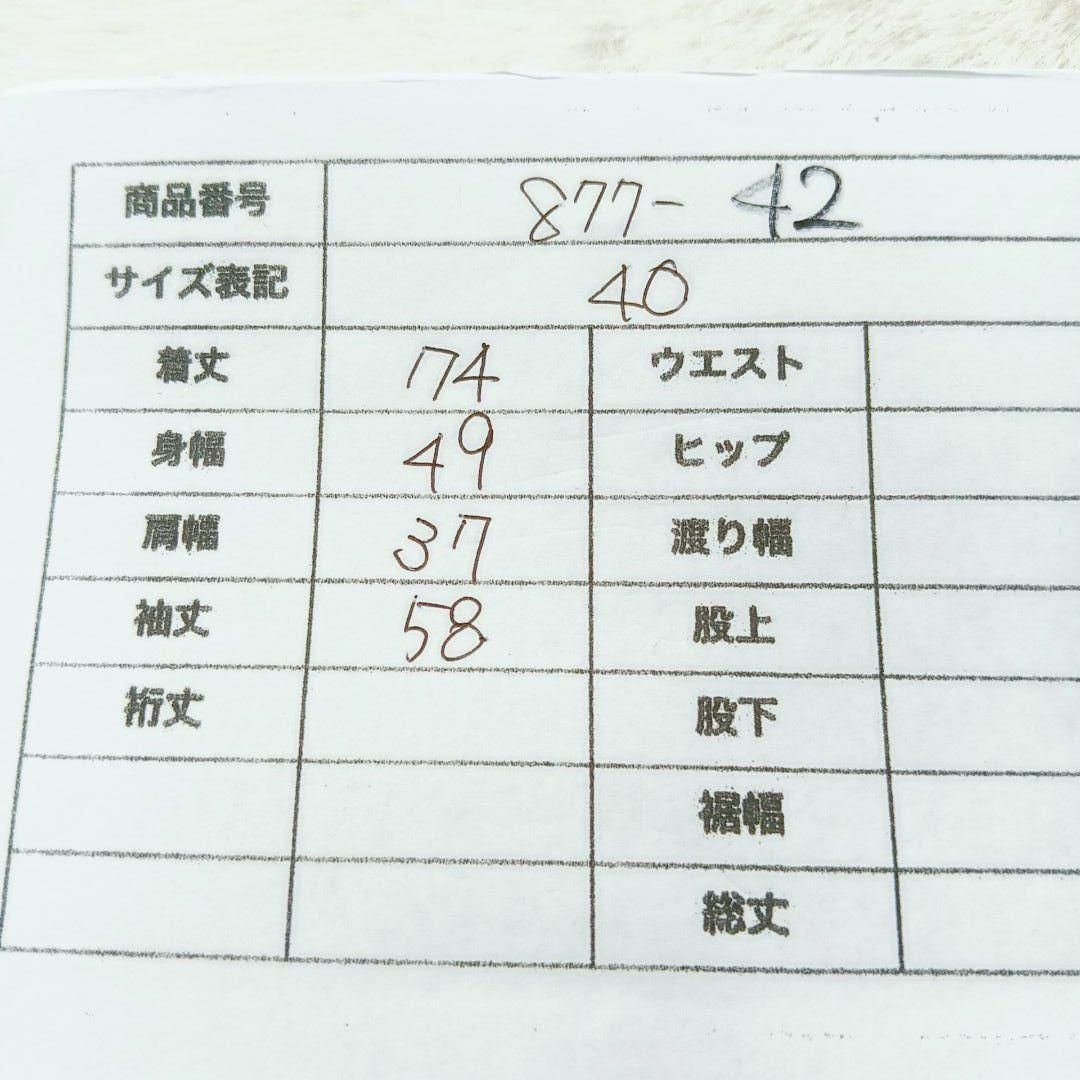 商品番号 877-42
サイズ表記 40
着丈 74 ウエスト
身幅 49 ヒップ
肩幅 37 渡り幅
袖丈 58 股上
裄丈 股下
裾幅
総丈